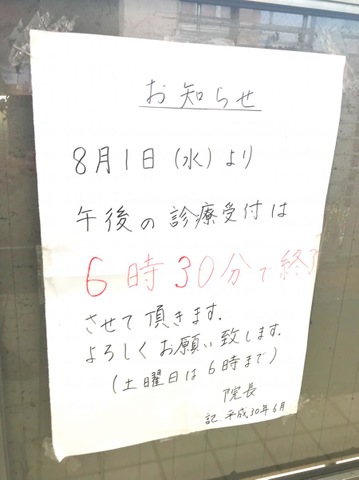 お知らせ
8月1日(水)より
午後の診療受付は
6時30分で終了
させて頂きます.
よろしくお願い致します.
(土曜日は6時まで)
院長
記 平成.30年6月